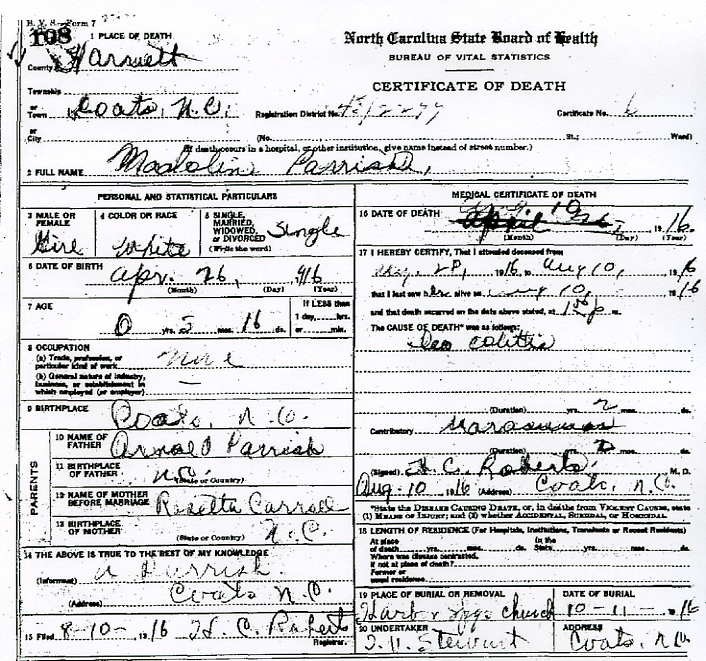 B. V. S.—Form 7
108
1 PLACE OF DEATH
County Harnett
Township
or
Town Coats, N.C.
or
City
North Carolina State Board of Health
BUREAU OF VITAL STATISTICS
CERTIFICATE OF DEATH
Registration District No.
Certificate No. 6
(No. St.; Ward)
(If death occurs in a hospital, or other institution, give name instead of street number.)
2 FULL NAME Parrish,
PERSONAL AND STATISTICAL PARTICULARS
3 MALE OR FEMALE
4 COLOR OR RACE White
5 SINGLE, MARRIED, WIDOWED, or DIVORCED (Write the word) Single
6 DATE OF BIRTH Apr. 26, 916
(Month) (Day) (Year)
7 AGE
0 yrs. 5 mos. 16 ds.
If LESS than
1 day, hrs.
or min.
8 OCCUPATION
(a) Trade, profession, or
particular kind of work
(b) General nature of industry,
business, or establishment in
which employed (or employer) —
9 BIRTHPLACE Coats, N.C.
PARENTS
10 NAME OF FATHER Arnold Parrish
11 BIRTHPLACE OF FATHER N.C.
(State or Country)
12 NAME OF MOTHER BEFORE MARRIAGE Rosetta
13 BIRTHPLACE OF MOTHER N.C.
(State or Country)
14 THE ABOVE IS TRUE TO THE BEST OF MY KNOWLEDGE
(Informant) A Parrish
(Address) Coats N.C.
15 Filed 8-10- 1916 H. C. Roberts
Registrar.
MEDICAL CERTIFICATE OF DEATH
16 DATE OF DEATH 10 1916.
(Month) (Day) (Year)
17 I HEREBY CERTIFY, That I attended deceased from
1916 to Aug 10, 1916
that I last saw alive on Aug 10, 1916
and that death occurred on the date above stated, at m.
The CAUSE OF DEATH* was as follows:
Ileo colitis
(Duration) yrs. 2 mos. ds.
Contributory Marasmus
(Duration) 2 mos. ds.
(Signed) H. C. Roberts, M. D.
Aug-10 1916 (Address) Coats, N.C.
*State the DISEASE CAUSING DEATH, or, in deaths from VIOLENT CAUSES, state
(1) MEANS OF INJURY; and (2) whether ACCIDENTAL, SUICIDAL, or HOMICIDAL
18 LENGTH OF RESIDENCE (For Hospitals, Institutions, Transients or Recent Residents)
At place of death yrs. mos. ds. In the State yrs. mos. ds.
Where was disease contracted,
if not at place of death?
Former or
usual residence
19 PLACE OF BURIAL OR REMOVAL
church
DATE OF BURIAL
10-11- 1916
20 UNDERTAKER
Stewart
ADDRESS
Coats, N.C.